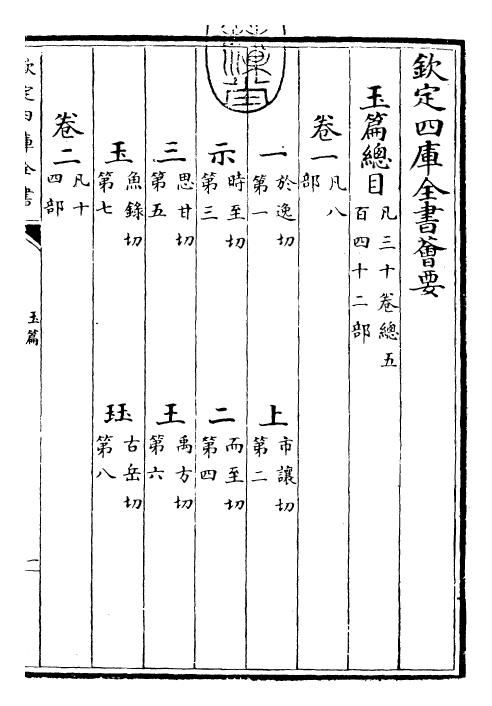 欽定四庫全書薈要
玉篇總目凡三十卷總五百四十二部
卷一凡八部
一於逸切第一
上市讓切第二
示時至切第三
二而至切第四
三思甘切第五
王禹方切第六
玉魚錄切第七
珏古岳切第八
卷二凡十四部
欽定四庫全書
玉篇
一